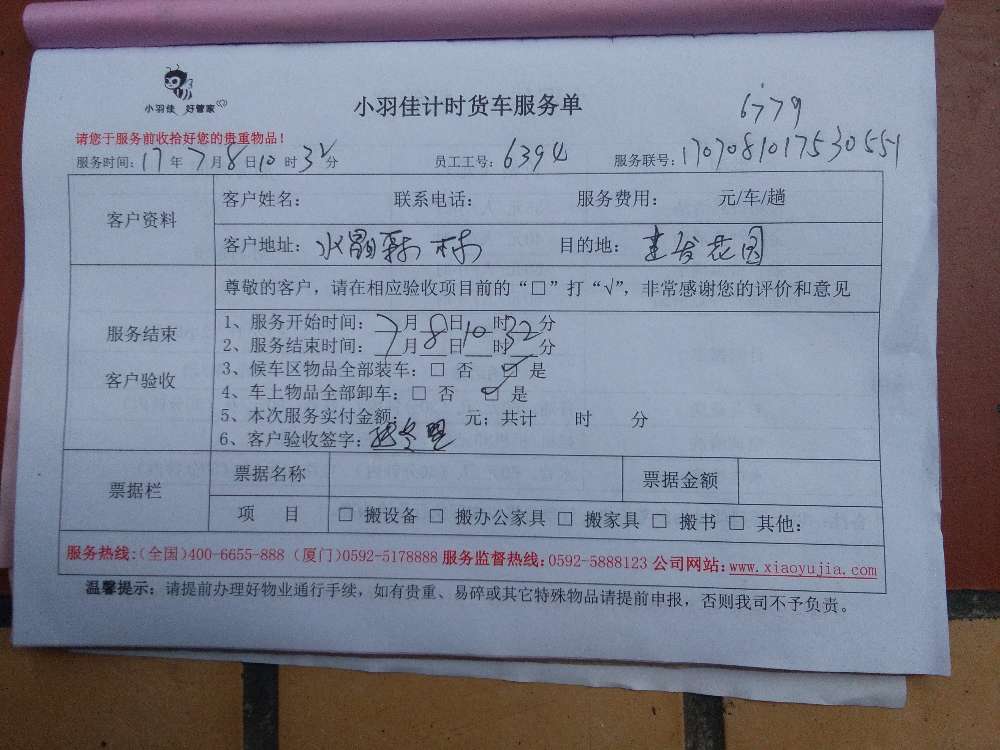 小羽佳 好管家
小羽佳计时货车服务单
6779
请您于服务前收拾好您的贵重物品！
服务时间：17年7月8日10时32分 员工工号：6394 服务联号：1707081017530551
客户资料
客户姓名： 联系电话： 服务费用： 元/车/趟
客户地址：水晶森林 目的地：建发花园
服务结束
客户验收
尊敬的客户，请在相应验收项目前的“□”打“√”，非常感谢您的评价和意见
1、服务开始时间：7月8日10时32分
2、服务结束时间：__月__日__时__分
3、候车区物品全部装车：□ 否 ☑ 是
4、车上物品全部卸车：□ 否 ☑ 是
5、本次服务实付金额： 元；共计 时 分
6、客户验收签字：
票据栏
票据名称 票据金额
项 目 □ 搬设备 □ 搬办公家具 □ 搬家具 □ 搬书 □ 其他：
服务热线：（全国）400-6655-888（厦门）0592-5178888 服务监督热线：0592-5888123 公司网站：www.xiaoyujia.com
温馨提示：请提前办理好物业通行手续，如有贵重、易碎或其它特殊物品请提前申报，否则我司不予负责。